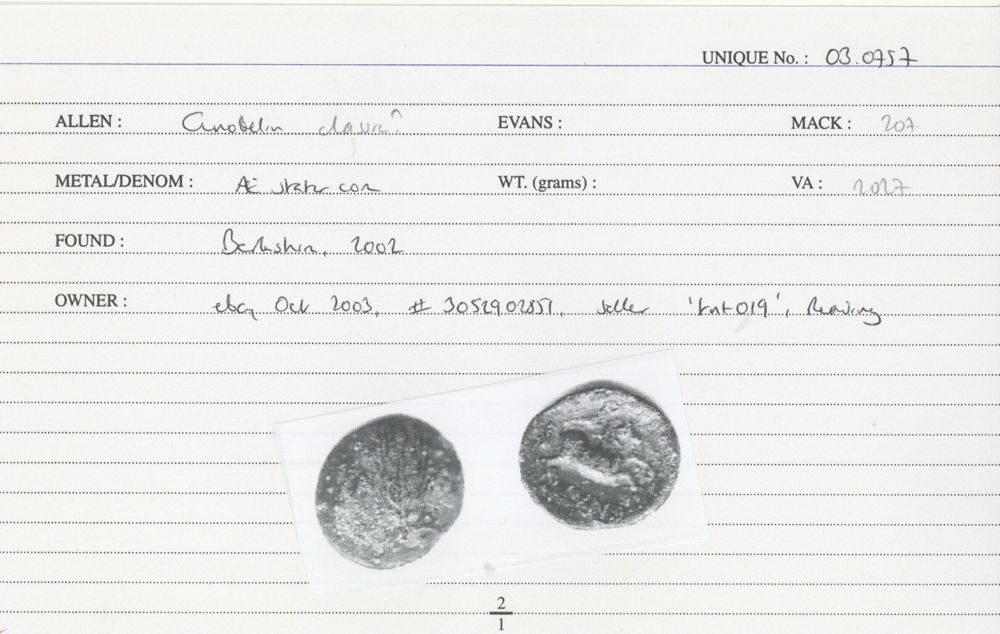 UNIQUE No. : 03.0757
ALLEN : Cunobelin classic? EVANS : MACK : 207
METAL/DENOM : Æ stater core WT. (grams) : VA : 2027
FOUND : Berkshire, 2002
OWNER : ebay Oct 2003, # 3052902851, seller Reading
2
1